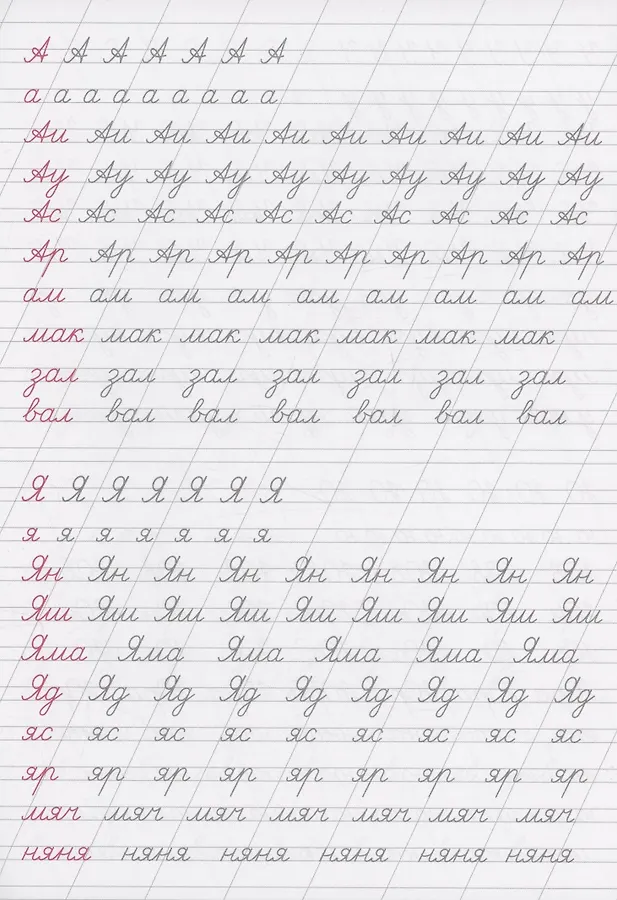 А А А А А А А
а а а а а а а а а
Аи Аи Аи Аи Аи Аи Аи Аи Аи Аи
Ау Ау Ау Ау Ау Ау Ау Ау Ау Ау
Ас Ас Ас Ас Ас Ас Ас Ас Ас Ас
Ар Ар Ар Ар Ар Ар Ар Ар Ар Ар
ам ам ам ам ам ам ам ам ам
мак мак мак мак мак мак мак
зал зал зал зал зал зал зал
вал вал вал вал вал вал вал
Я Я Я Я Я Я Я
я я я я я я я
Ян Ян Ян Ян Ян Ян Ян Ян Ян
Яш Яш Яш Яш Яш Яш Яш Яш Яш
Яма Яма Яма Яма Яма Яма
Яд Яд Яд Яд Яд Яд Яд Яд Яд
яс яс яс яс яс яс яс яс яс
яр яр яр яр яр яр яр яр яр
мяч мяч мяч мяч мяч мяч мяч
няня няня няня няня няня няня